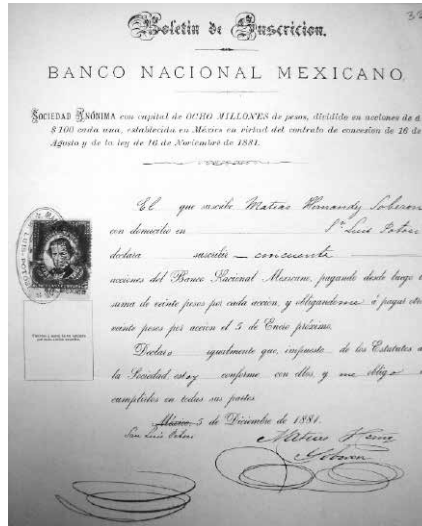 32
Boletin de Suscricion.
BANCO NACIONAL MEXICANO,
SOCIEDAD ANÓNIMA con capital de OCHO MILLONES de pesos, dividido en acciones de á
$100 cada una, establecida en México en virtud del contrato de concesion de 16 de
Agosto y de la ley de 16 de Noviembre de 1881.
El que suscribe Matias Hernandez Soberon
con domicilio en Sn Luis Potosi
declara suscribir cincuenta
acciones del Banco Nacional Mexicano, pagando desde luego
suma de veinte pesos por cada accion, y obligandome á pagar
veinte pesos por accion el 5 de Enero próximo.
Declaro igualmente que, impuesto de los Estatutos de
la Sociedad estoy conforme con ellos, y me obligo
cumplirlos en todas sus partes.
México 5 de Diciembre de 1881.
San Luis Potosi
Matias
Soberon